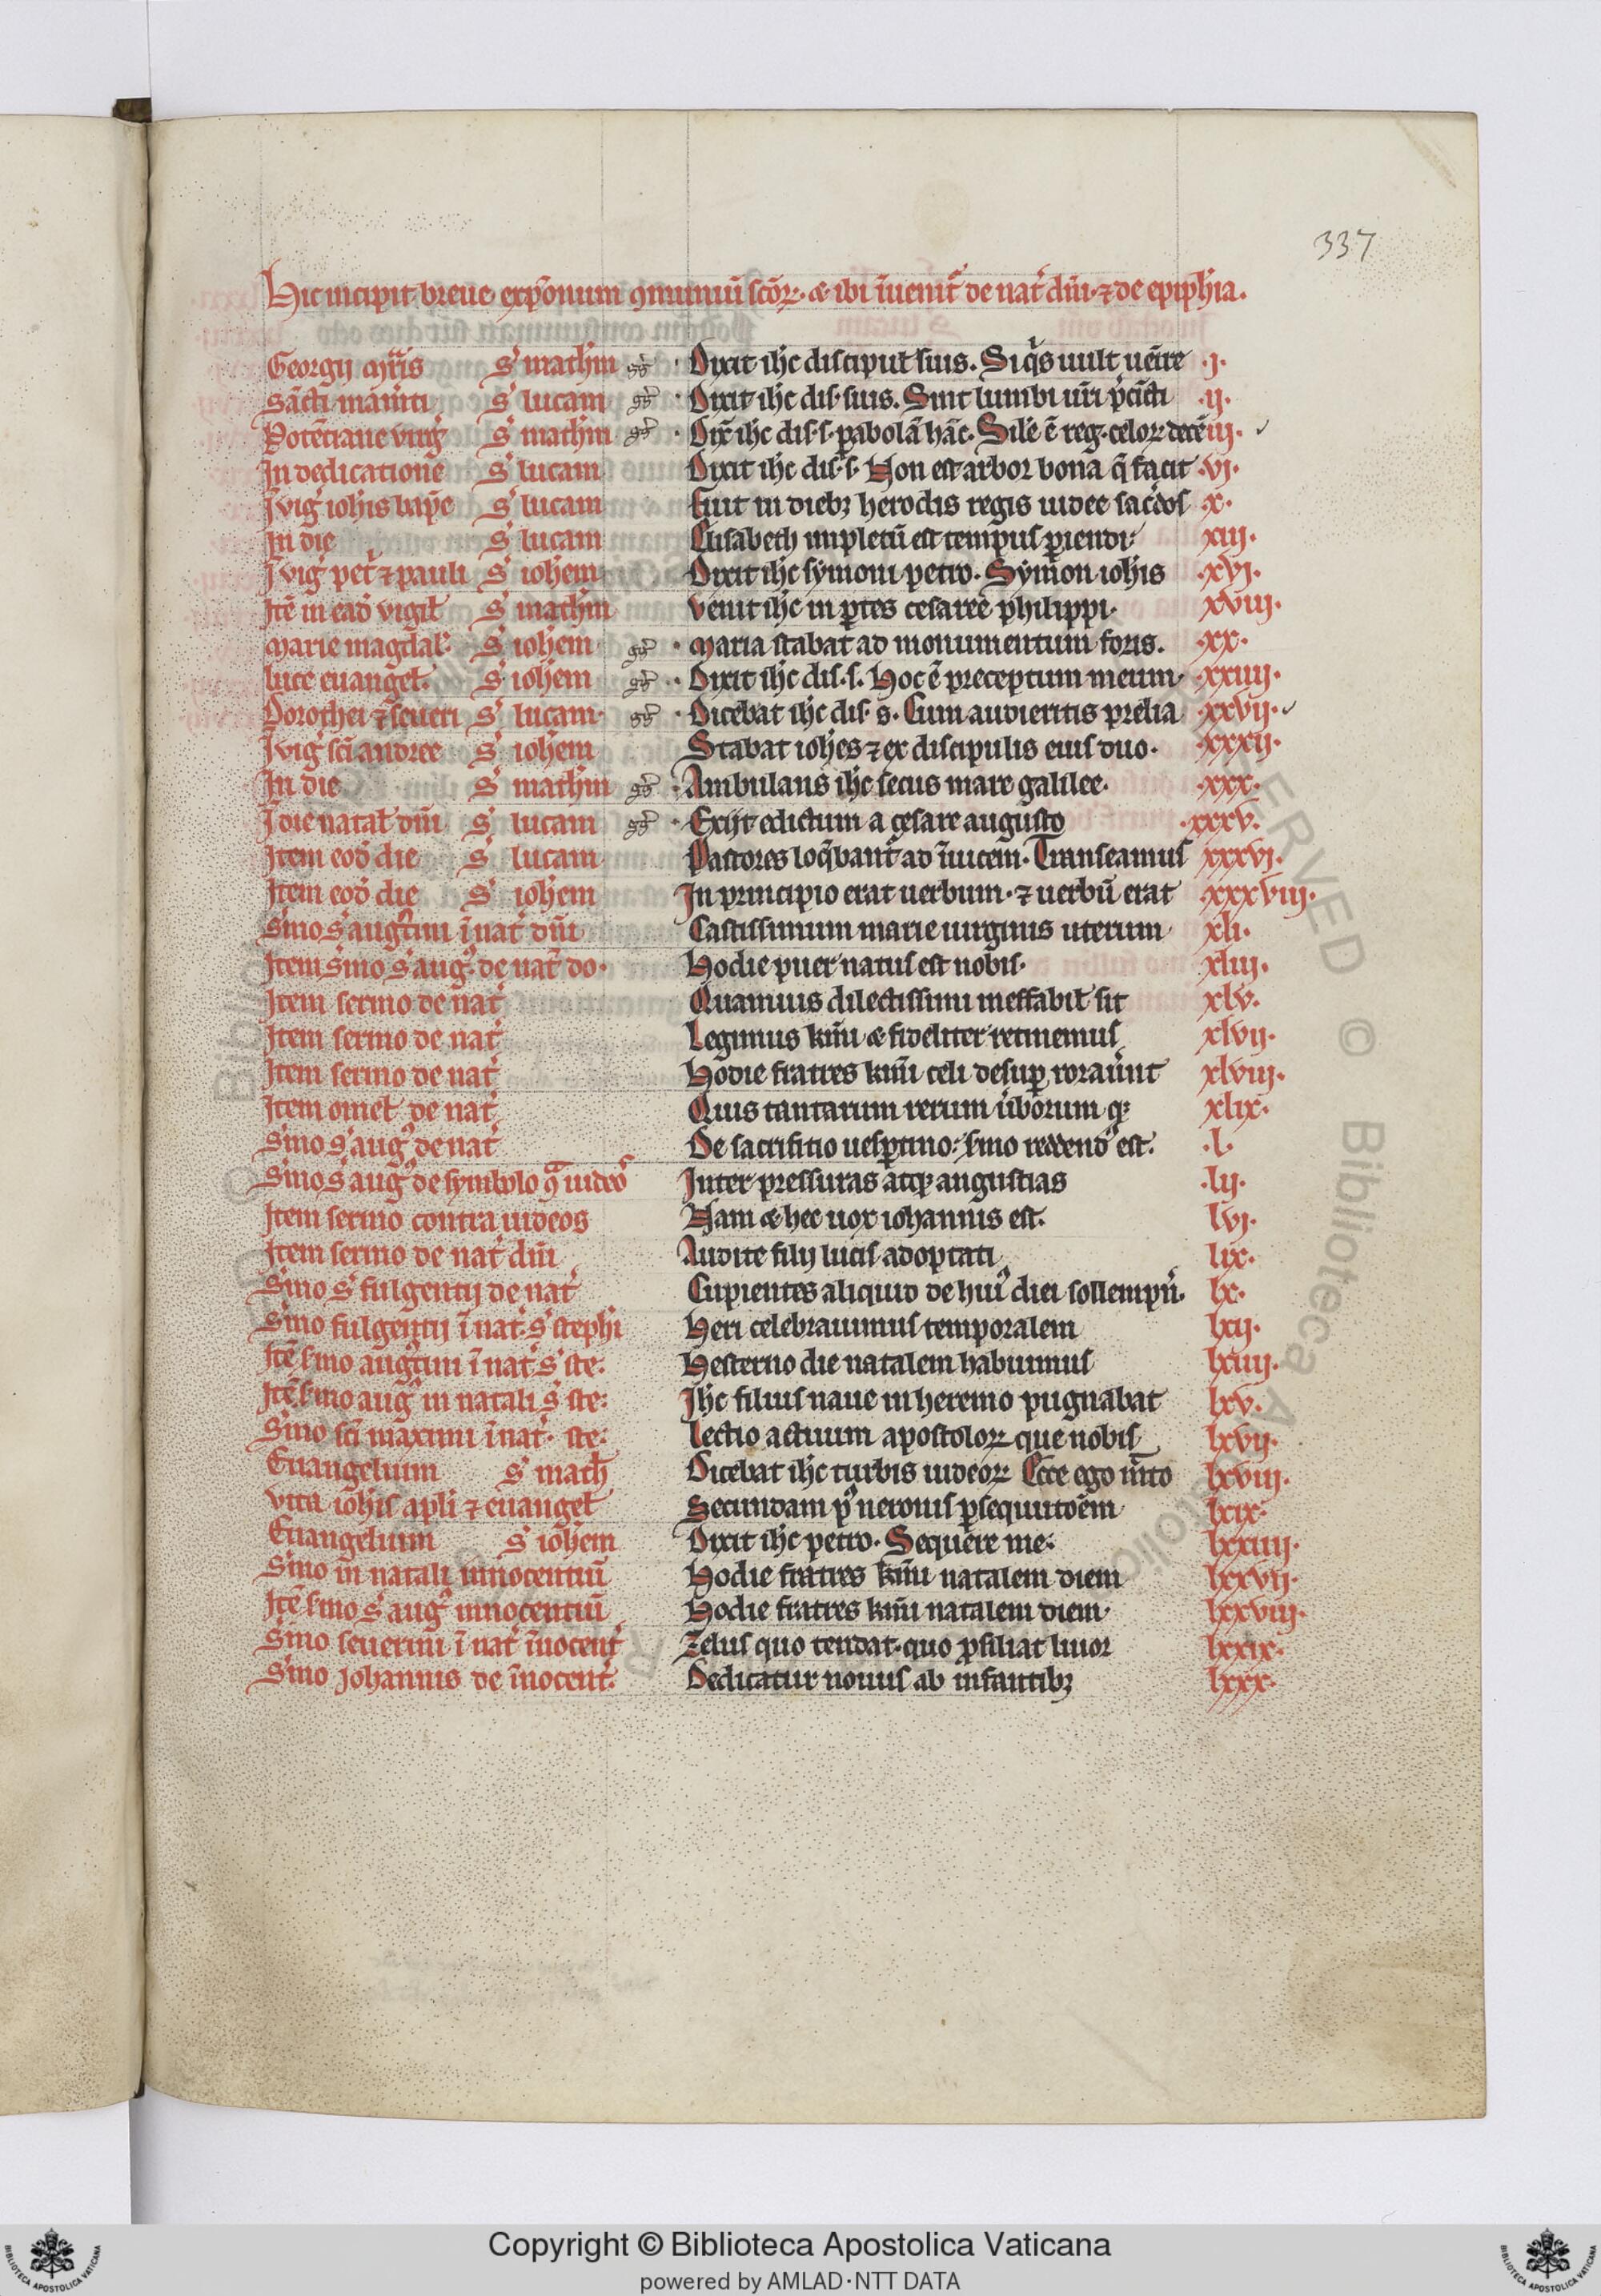 337
Hic incipit breue exp̄onum ꝯmuniū sc̄oꝝ. & ibi īuenit̄ de nat̓ dn̄i. ⁊ de epiph̄ia.
Georgij mr̄is s̓ math̄m gg̓ · Dixit ih̄c discipul̄ suis. Siq̄s uult uēire .j.
Sācti mām̄ti s̓ lucam gg̓ · Dixit ih̄c dis. suis. Sint lumbi ur̄i p̄cīcti .ij.
Potētiane virg̓ s̓ math̄m gg̓ · Dix̄ ih̄c dis. s. ꝑabolā hāc. Sil̄e ē reg. celoꝝ decē iij.
In dedicatione s̓ lucam Dixit ih̄c dis. s. Non est arbor bona q̄ facit .vj.
J vig̓ ioh̄is bap̄e s̓ lucam Fuit in dieb; herodis regis iudee sac̓dos .x.
In die s̓ lucam Elisabeth impletū est tempus ꝑiendi. xiij.
J vig̓ pet̓ ⁊ pauli s̓ ioh̄em Dixit ih̄c symoni petro. Symon ioh̄is .xvj.
Itē in ead̓ vigil̄ s̓ math̄m Venit ih̄c in ꝑtes cesaree philippi. xviij.
Marie magdal̄. s̓ ioh̄em gg̓ · Maria stabat ad monumentum foris. .xx.
luce euangel̄. s̓ ioh̄em gg̓ · Dixit ih̄c dis. s. Hoc ē preceptum meum .xxiiij.
Dorothei ⁊ seueri s̓ lucam. gg̓ · Dicebat ih̄c dis. s. Cum audieritis prelia .xxvij.
J vig̓ sc̄i andree s̓ ioh̄em Stabat ioh̄es ⁊ ex discipulis eius duo. .xxxij.
In die s̓ math̄m gg̓ · Ambulans ih̄c secus mare galilee. .xxx.
J die natal̄ dn̄i s̓ lucam gg̓ · Exijt edictum a cesare augusto .xxxv.
Item eod̓ die s̓ lucam Pastores loq̄bant̓ ad īuicem. Transeamus xxxvj.
Item eod̓ die s̓ ioh̄em In principio erat uerbum. ⁊ uerbū erat xxxviij.
S̓mo s̓ aug̓tini ī nat̓ dn̄i Castissimum marie uirginis uterum xli.
Item s̓mo s̓ aug̓. de nat̓ do. Hodie puer natus est nobis. xliij.
Item sermo de nat̓ Quamuis dilectissimi ineffabil̄ sit xlv.
Item sermo de nat̓ Legimus km̄i & fideliter retinemus xlvij.
Item sermo de nat̓ Hodie fratres km̄i celi desuꝑ rorauer̄t xlviij.
Item omel̄ de nat̓ Quis tantarum rerum ūborum q; xlix.
S̓mo s̓ aug̓ de nat̓ De sacrifitio uesꝑtino. s̓mo reddend̓ est. .l.
S̓mo s̓ aug̓ de symbolo ꝯ̄ iudeo᷒ Inter pressuras atq; angustias .lij.
Item sermo contra iudeos Nam & hec uox iohannis est. lvj.
Item sermo de nat̓ dn̄i Audite filij lucis adoptati lix.
S̓mo s̓ fulgentij de nat̓ Cupientes aliquid de hui᷒ diei sollempn̄. lx.
S̓mo fulgentij ī nat̓. s̓ steph̄i Heri celebrauimus temporalem lxij.
Itē s̓mo aug̓tini ī nat̓ s̓ ste. Hesterno die natalem habuimus lxiiij.
Itē s̓mo aug̓ in natali s̓ ste. Jh̄c filius naue in heremo pugnabat lxv.
S̓mo sc̄i maximi ī nat̓. ste. Lectio actuum apostoloꝝ que nobis lxvij.
Euangelium s̓ math̄ Dicebat ih̄c turbis iudeoꝝ Ecce ego m̄to lxviij.
Vita ioh̄is ap̄li ⁊ euangel̄ Secundam p᷒ neronis ꝑsequutōem lxix.
Euangelium s̓ ioh̄em Dixit ih̄c petro. Sequere me. lxxiiij.
S̓mo in natali innocentiū Hodie fratres km̄i natalem diem lxxvij.
Itē s̓mo s̓ aug̓ innocentiū Hodie fratres km̄i natalem diem lxxviij.
S̓mo seuerini ī nat̓ īnocent̓ Zelus quo tendat. quo ꝓsiliat liuor lxxix.
S̓mo Johannis de īnocent̓. Dedicatur nouus ab infantib; lxxx.
Copyright © Biblioteca Apostolica Vaticana
powered by AMLAD·NTT DATA